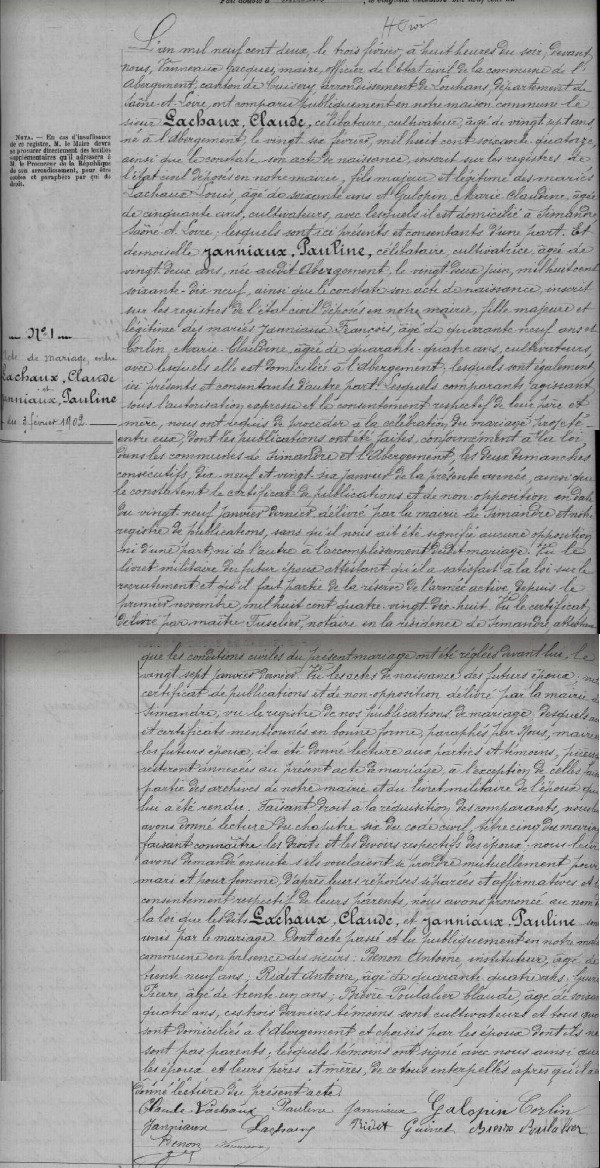 L'an mil neuf cent deux, le trois février, à huit heures du soir, devant
nous, Vanneaux Jacques, maire, officier de l'état civil de la commune de l'
Abergement, canton de Cuisery, arrondissement de Louhans, département de
Saône-et-Loire, ont comparu publiquement en notre maison commune le
sieur Lachaux, Claude, célibataire, cultivateur, âgé de vingt sept ans
né à l'Abergement, le vingt six février, mil huit cent soixante quatorze,
ainsi que le constate son acte de naissance, inscrit sur les registres de
l'état civil déposés en notre mairie, fils majeur et légitime des mariés
Lachaux Louis, âgé de soixante ans et Galopin, Marie Claudine, âgée
de cinquante ans, cultivateurs, avec lesquels il est domicilié à Simandre
Saône et Loire; lesquels sont ici présents et consentants d'une part. Et
demoiselle Janniaux, Pauline, célibataire, cultivatrice, âgée de
vingt deux ans, née audit Abergement, le vingt deux juin, mil huit cent
soixante-dix neuf, ainsi que le constate son acte de naissance, inscrit
sur les registres de l'état civil déposés en notre mairie, fille majeure et
légitime des mariés Janniaux François, âgé de quarante neuf ans et
Corlin, Marie-Claudine, âgée de quarante-quatre ans, cultivateurs,
avec lesquels elle est domiciliée à l'Abergement; lesquels sont également
ici présents et consentants d'autre part. Lesquels comparants, agissant
sous l'autorisation expresse et le consentement respectif de leurs père et
mère, nous ont requis de procéder à la célébration du mariage projeté
entre eux, dont les publications ont été faites, conformément à la loi,
dans les communes de Simandre et l'Abergement, les deux dimanches
consécutifs, dix-neuf et vingt-six janvier de la présente année, ainsi que
le constatent le certificat de publications et de non-opposition en date
du vingt neuf janvier dernier, délivré par la mairie de Simandre et notre
registre de publications, sans qu'il nous ait été signifié aucune opposition
ni d'une part, ni de l'autre à l'accomplissement dudit mariage. Vu le
livret militaire du futur époux attestant qu'il a satisfait à la loi sur le
recrutement et qu'il fait partie de la réserve de l'armée active depuis le
premier novembre, mil huit cent quatre-vingt dix-huit. Vu le certificat
délivré par maître Fuselier, notaire en la résidence de Simandre, attestant
NOTA. — En cas d'insuffisance
de ce registre, M. le Maire devra
se procurer directement les feuilles
supplémentaires qu'il adressera à
M. le Procureur de la République
de son arrondissement, pour être
cotées et paraphées par qui de
droit.
— N° 1 —
Acte de mariage, entre
Lachaux, Claude
et
Janniaux, Pauline
du 3 février 1902
que les conditions civiles du présent mariage ont été réglées devant lui, le
vingt sept janvier dernier. Vu les actes de naissance des futurs époux, vu
certificat de publications et de non-opposition délivré par la mairie de
Simandre, vu le registre de nos publications de mariage, desquels actes
et certificats mentionnés en bonne forme, paraphés par Nous, maire
les futurs époux, il a été donné lecture aux parties et témoins, pièces
resteront annexées au présent acte de mariage, à l'exception de celles faisant
partie des archives de notre mairie et du livret militaire de l'époux qui
lui a été rendu. Faisant droit à la réquisition des comparants, nous leur
avons donné lecture du chapitre six du code civil, titre cinq du mariage
faisant connaître les droits et les devoirs respectifs des époux. nous leur
avons demandé ensuite s'ils voulaient se prendre mutuellement pour
mari et pour femme, d'après leurs réponses séparées et affirmatives et le
consentement respectif de leurs parents, nous avons prononcé au nom de
la loi que lesdits Lachaux, Claude, et Janniaux, Pauline sont
unis par le mariage. Dont acte passé et lu publiquement en notre maison
commune en présence des sieurs: Benon Antoine, instituteur, âgé de
trente neuf ans; Ridet Antoine, âgé de quarante quatre ans; Guinet
Pierre, âgé de trente un ans; Claude, âgé de soixante
quatre ans, ces trois derniers témoins sont cultivateurs et tous quatre
sont domiciliés à l'Abergement et choisis par les époux dont ils ne
sont pas parents; lesquels témoins ont signé avec nous ainsi que
les époux et leurs pères et mères, de ce tous interpellés après qu'il a
donné lecture du présent acte.
Claude Lachaux Pauline Janniaux Galopin Corlin
Janniaux Lachaux Ridet Guinet
Benon